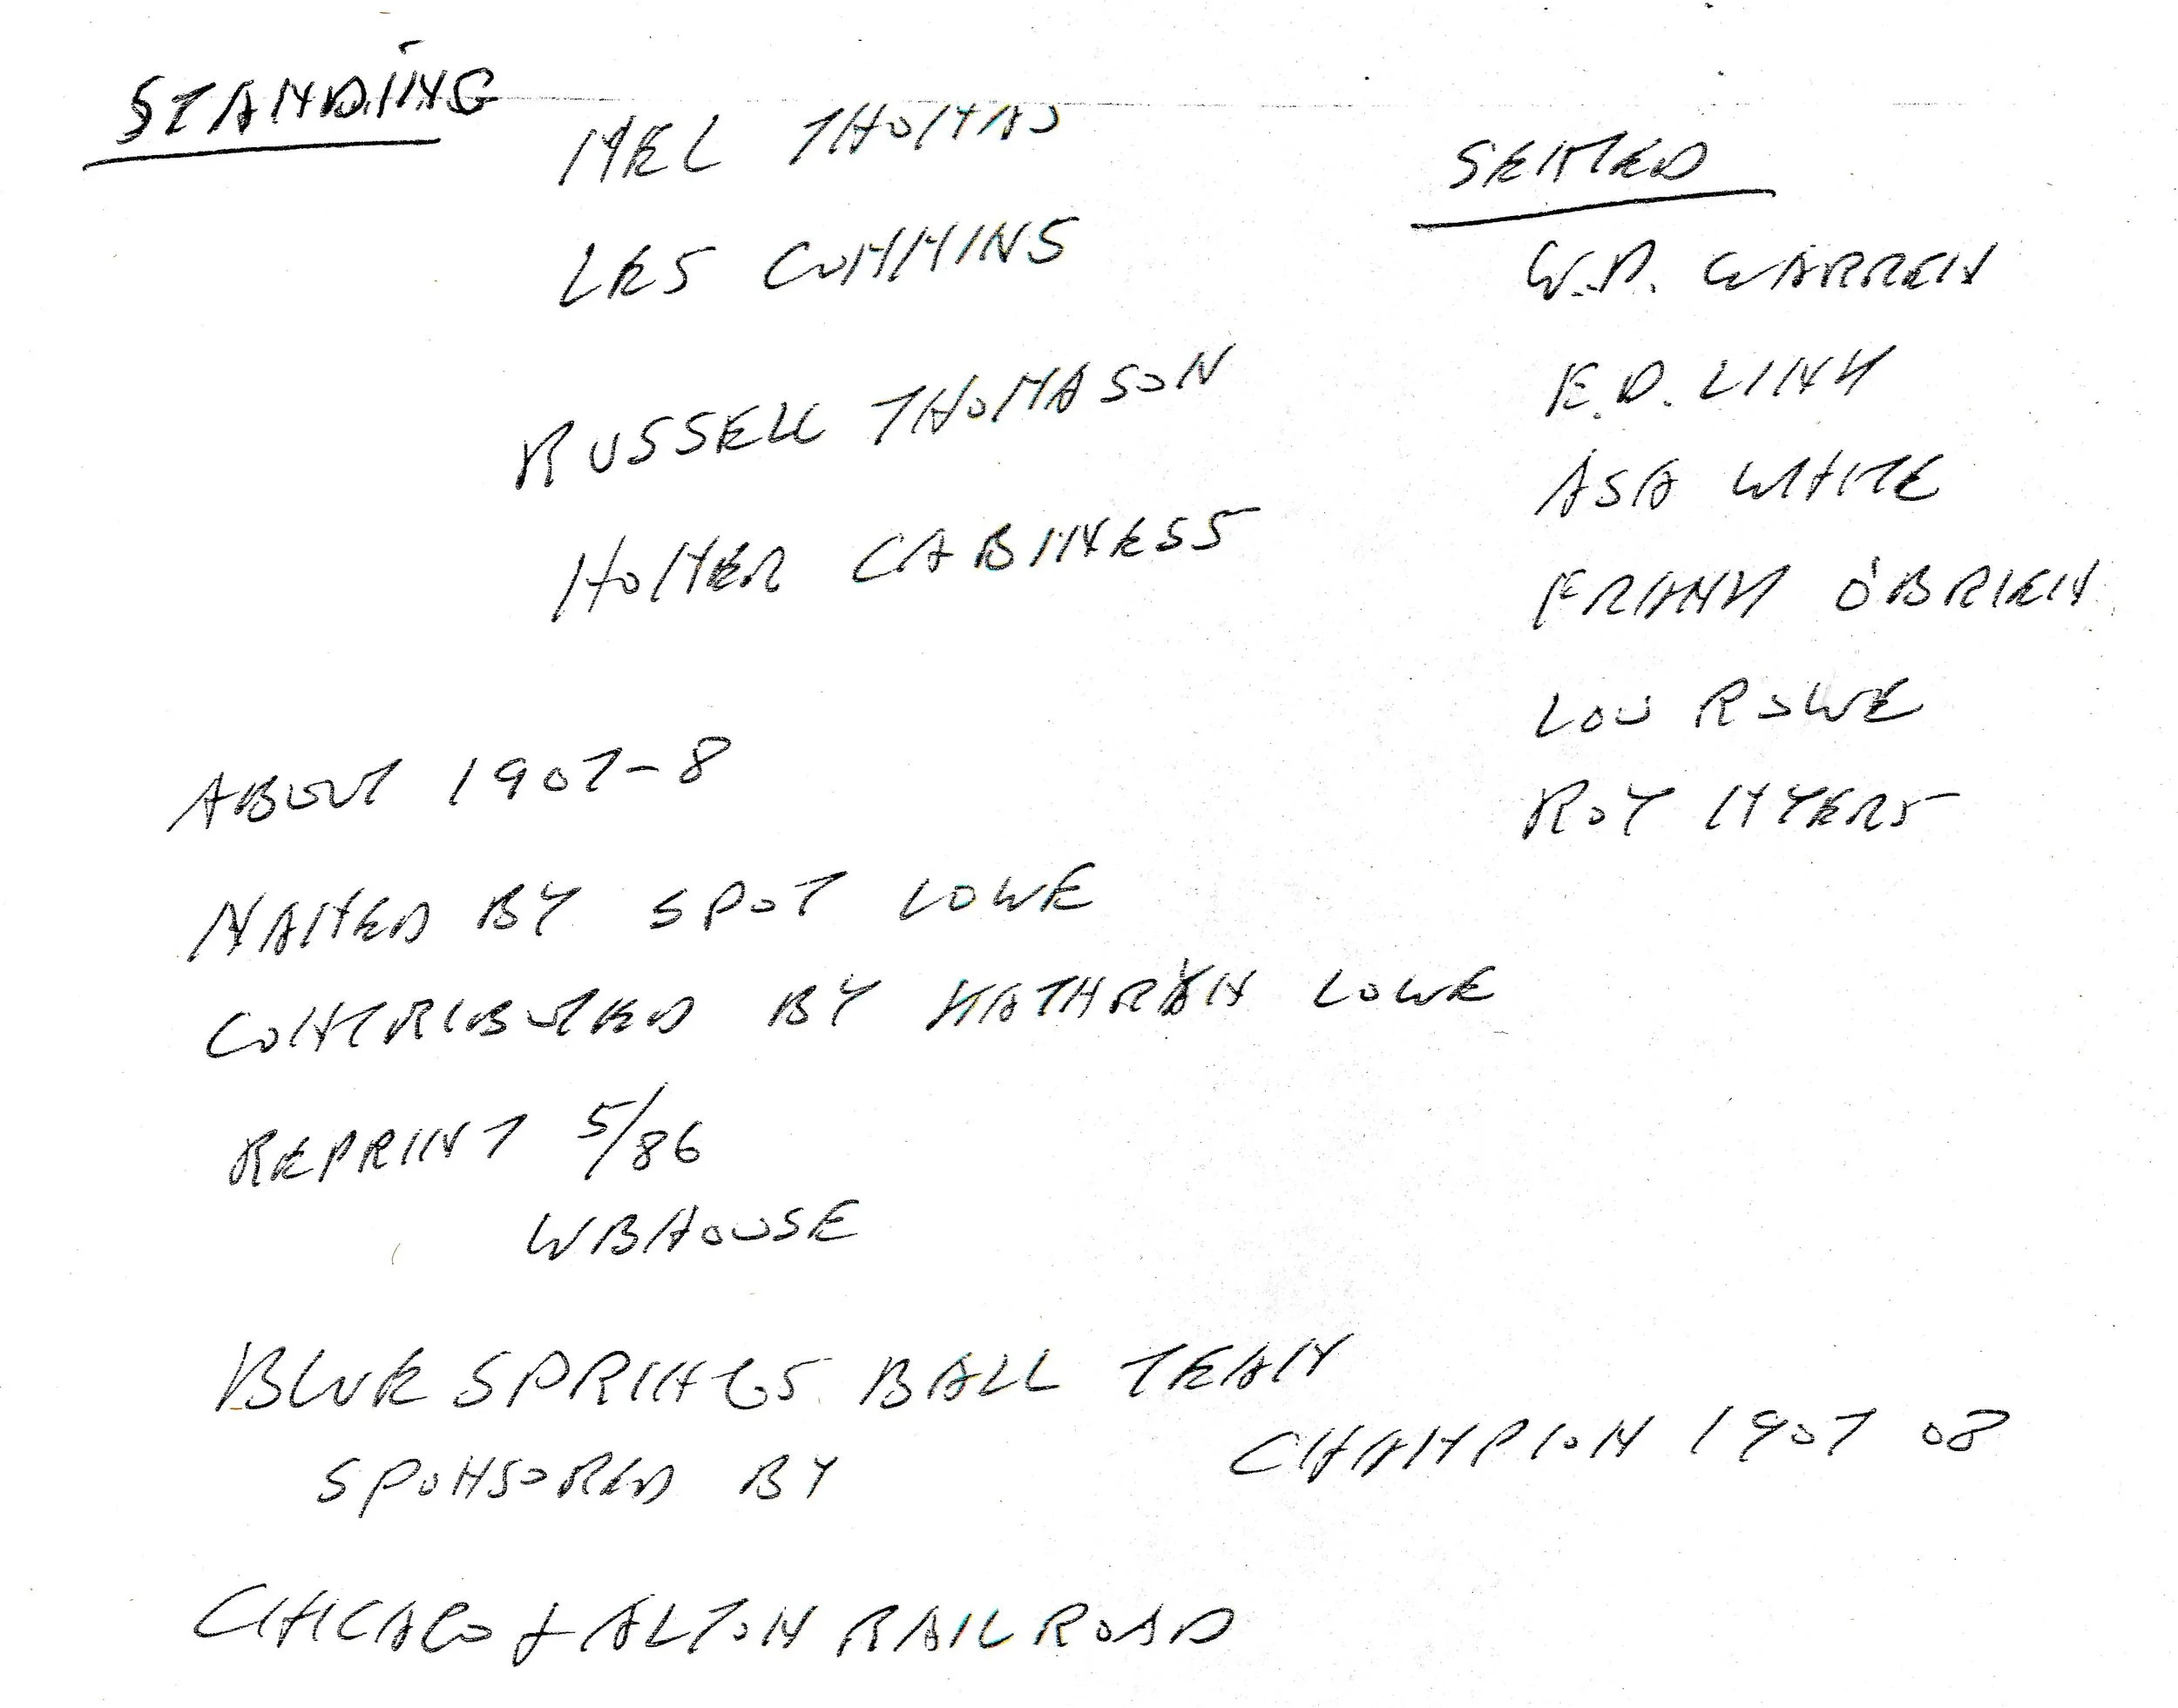 STANDING
MEL THOMAS
LES COMMINS
RUSSELL THOMASON
HOMER CABINESS
SEATED
W.D. WARREN
E.D. LINN
ASA WHITE
FRANK O'BRIEN
LOU ROWE
ROY MYERS
ABOUT 1907-8
NAMED BY SPOT LOWE
CONTRIBUTED BY KATHRYN LOWE
REPRINT 5/86
WBHOUSE
BLUE SPRINGS BALL TEAM
CHAMPION 1907 08
SPONSORED BY
CHICAGO & ALTON RAILROAD